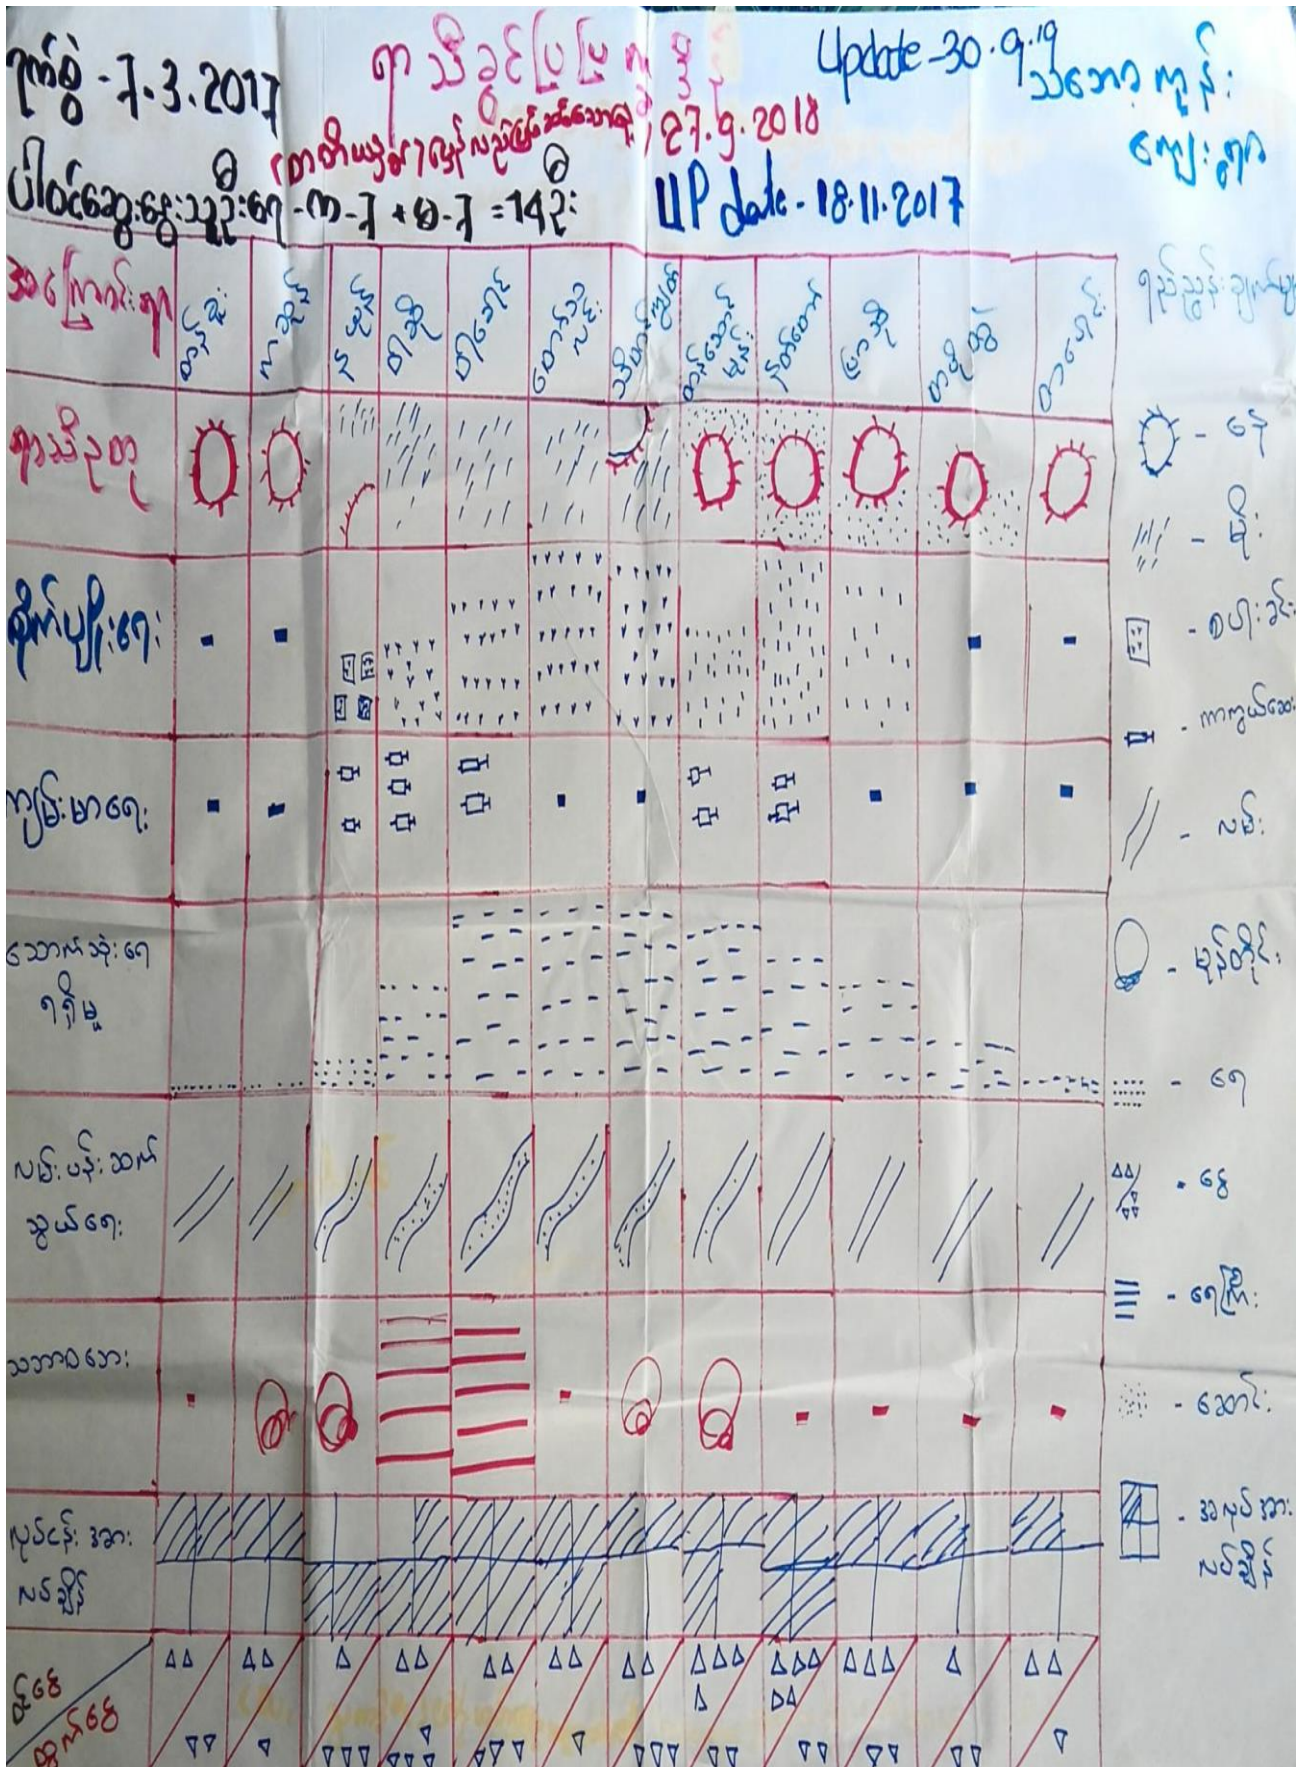 ရက်စွဲ - 7.3.2017
ရာသီခွင်ပြပြက္ခဒိန်
Update - 30.9.19
သင်္ဘောကုန်း
ကျေးရွာ
27.9.2018
ပါဝင်ဆွေးနွေးသူဦးရေ - က - 7 + မ - 7 = 14 ဦး
UP date - 18.11.2017
အကြောင်းရာ
တန်ခူး
ကဆုန်
နယုန်
ဝါဆို
ဝါခေါင်
တော်သလင်း
သီတင်းကျွတ်
တန်ဆောင်မုန်း
နတ်တော်
ပြာသို
တပို့တွဲ
တပေါင်း
ရာသီဥတု
စိုက်ပျိုးရေး
ကျမ်းမာရေး
သောက်သုံးရေ
ရရှိမှု
လမ်းပန်းဆက်
သွယ်ရေး
သဘာဝဘေး
လုပ်ငန်းအား
လပ်ချိန်
ဝင်ငွေ
ထွက်ငွေ
- နေ
- မိုး
- စပါးခင်း
- ကာကွယ်ဆေး
- လမ်း
- မုန်တိုင်း
- ရေ
- ငွေ
- ရေကြီး
- ဆောင်း
- အလုပ်အား
လပ်ချိန်